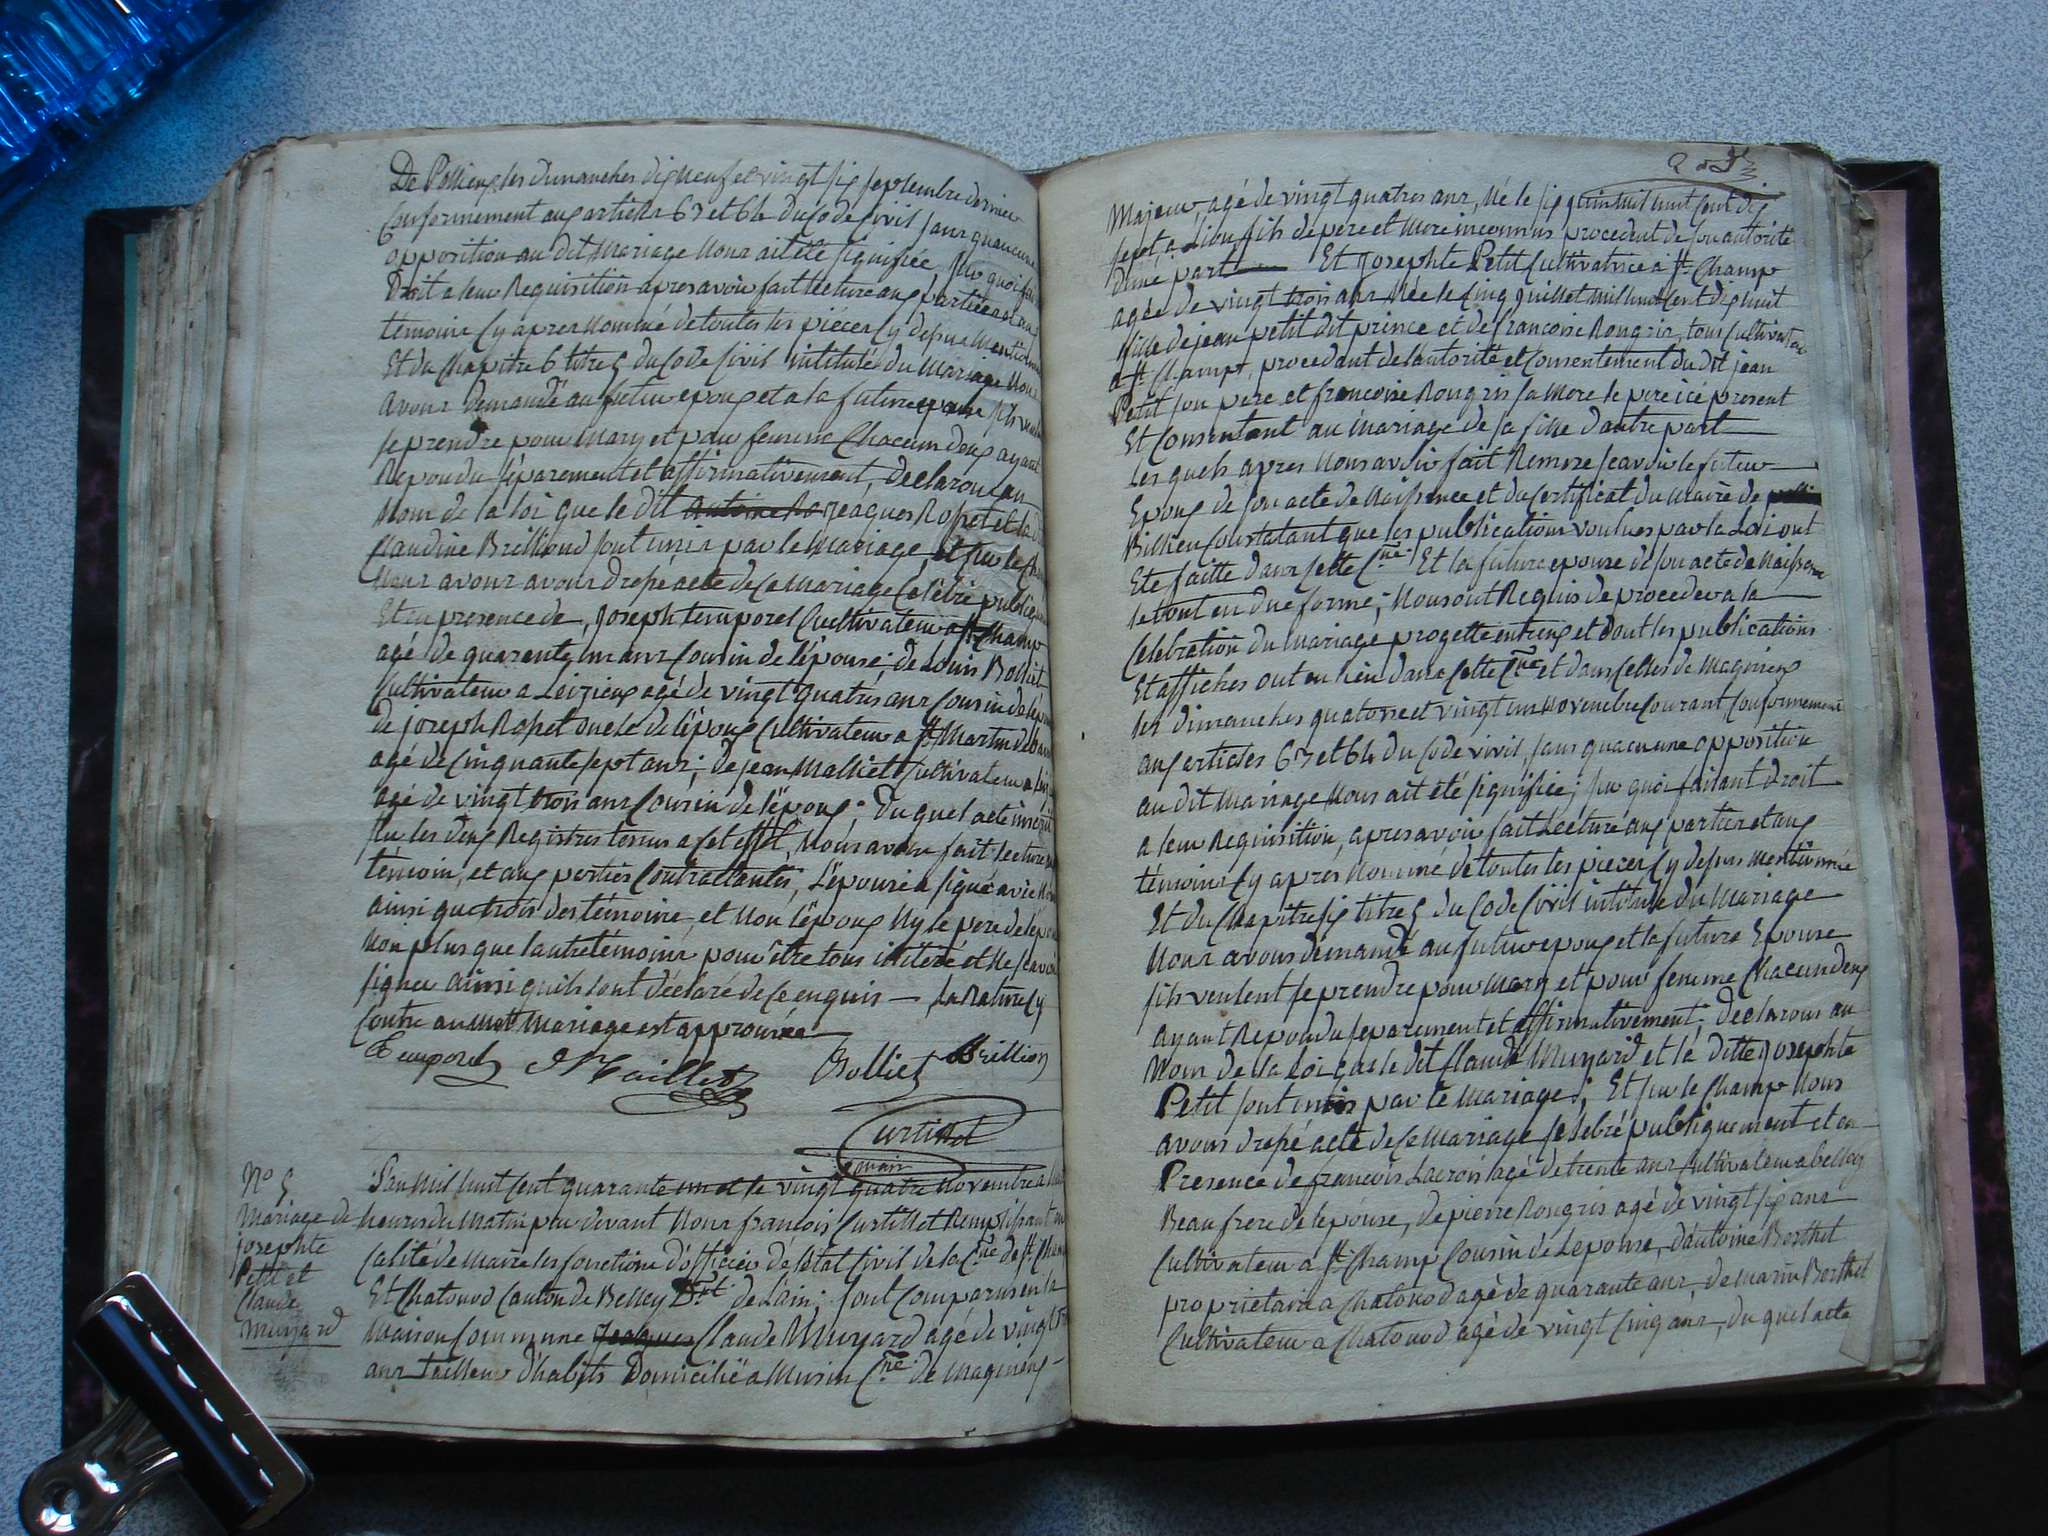 De Pollieux les dimanches dix neuf et vingt six septembre dernier
Conformement aux articles 63 et 64 du Code Civil sans qu'aucune
opposition au dit Mariage Nous ait été signifiée, sur quoi
Droit a leur Requisition apres avoir fait lecture aux parties et aux
temoins Cy apres Nommé de toutes les pièces Cy dessus Mentionnée
Et du Chapitre 6 titre 5 du Code Civil intitulé du Mariage Nous
avons demandé au futur epoux et a la future epouse s'ils veulent
se prendre pour Mary et pour femme Chacun deux ayant
Repondu séparement et affirmativement, declarons au
Nom de la loi que le dit Antoine Ro jeaques Rosset et la
Claudine Brillioud sont unis par le Mariage, et sur le Champ
Nous avons avons dressé acte de Ce Mariage Celébré publiquement
Et en presence de, joseph temporel Cultivateur a St Champ
agé de quarente un ans Cousin de l'épouse; de Louis Bolliet
Cultivateur a Leizieux agé de vingt quatres ans Cousin de l'épouse
de joseph Rosset oncle de l'époux Cultivateur a St Martin de
agé de Cinquante sept ans; de jean Malliet Cultivateur a
agé de vingt trois ans Cousin de l'époux; Du quel acte inscrit
sur les deux Registres tenus a cet effet, Nous avons fait lecture aux
témoin, et aux parties Contractantes, L'épouse a signé avec Nous
ainsi que trois des témoins, et Non l'époux Ny le pere de l'épouse
Non plus que l'autre témoins pour être tous illitéré et Ne scavoir
signer ainsi quils l'ont déclaré de Ce enquis — La Rature Cy
Contre au Mot Mariage est approuvée
Temporel J Mailliet Bolliet Brillion
Curtillet
maire
No 5
Mariage de
josephte
Petit et
Claude
Muryard
L'an Mil huit Cent quarante un et le vingt quatre Novembre a huit
heures du Matin par devant Nous françois Curtillet Remplissant en
Calité de Maire les fonctions d'officier de l'état Civil de la Cne de St Champ
Et Chatonod Canton de Belley Dpt de L'ain; sont Comparus en la
Maison Commune Jeaques Claude Muryard agé de vingt
ans tailleur d'habits Domicilié a Musin Cne de Magnieux
Majeur, agé de vingt quatres ans, Né le six juin Mil huit Cent dix
sept, a Lion fils de père et Mere inconnus procedent de son autorité
d'une part — Et Josephte Petit Cultivatrice a St Champ
agée de vingt trois ans Née le Cinq juillet Mil huit Cent dix huit
fille de jean petit dit prince et de francoise Rongris, tous Cultivateurs
a St Champt, procedant de l'autorité et Consentement du dit jean
Petit son pere et francoise Rongris sa Mere le pere icé present
Et Consentant au Mariage de sa fille d'autre part
Les quels apres Nous avoir fait Remise scavoir le futur
Epoux de son acte de Naissence et du Certificat du Maire de
Billieu Constatant que les publications voulues par la Loi ont
Eté faitte dans sette Cne. Et la future epouse de son acte de Naissence
le tout en due forme; Nous ont Requis de proceder a la
Celebration du Mariage progetté entreux et dont les publications
Et affiches ont eu lieu dans Cette Cne et dans Celles de Magnieux
les dimanches quatorze et vingt un Novembre Courant Conformement
aux articles 63 et 64 du Code vivil, sans qu'aucune opposition
au dit Mariage Nous ait été signifiée; sur quoi faisant droit
a leur Requisition, apres avoir fait Lecture aux parties et aux
témoins Cy apres Nommé de toutes les pieces Cy dessus Mentionnée
Et du Chapitre six titre 5 du Code Civil intitule du Mariage
Nous avons demandé au futur epoux et la future Epouse
sils veulent se prendre pour Mary et pour femme Chacun deux
ayant Repondu separement et affirmativement; declarons au
Nom de la Loi que le dit Claude Muryard et la ditte josephte
Petit sont unis par le Mariage; Et sur le Champ Nous
avons dressé acte de Ce Mariage selebré publiquement et en
Presence de francois Lacroix agé de trente ans Cultivateur a belley
Beau frere de lepouse, de pierre Rongris agé de vingt six ans
Cultivateur a St Champ Cousin de Lepouse, d'antoine Berthet
propriétaire a Chatonod agé de quarante ans, de Marin Berthet
Cultivateur a Chatonod agé de vingt Cinq ans, du quel acte